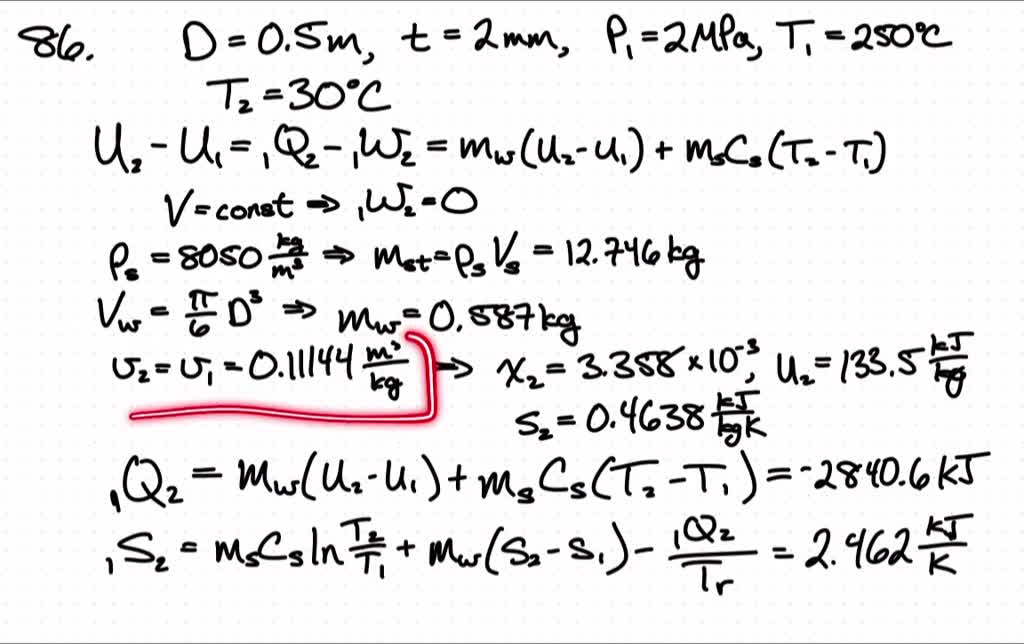 86. D = 0.5m, t = 2mm, P₁ = 2MPa, T₁ = 250°C
T₂ = 30°C
U₂ - U₁ = ₁Q₂ - ₁W₂ = m_w(u₂ - u₁) + m_sC_s(T₂ - T₁)
V = const ⇒ ₁W₂ = 0
ρ_s = 8050 kg/m³ ⇒ m_st = ρ_s V_s = 12.746 kg
V_w = π/6 D³ ⇒ m_w = 0.587 kg
v₂ = v₁ = 0.11144 m³/kg ⇒ x₂ = 3.358 × 10⁻³, u₂ = 133.5 kJ/kg
s₂ = 0.4638 kJ/kgK
₁Q₂ = m_w(u₂ - u₁) + m_s C_s(T₂ - T₁) = -2840.6 kJ
₁S₂ = m_sC_s ln T₂/T₁ + m_w(s₂ - s₁) - ₁Q₂/T_r = 2.462 kJ/K